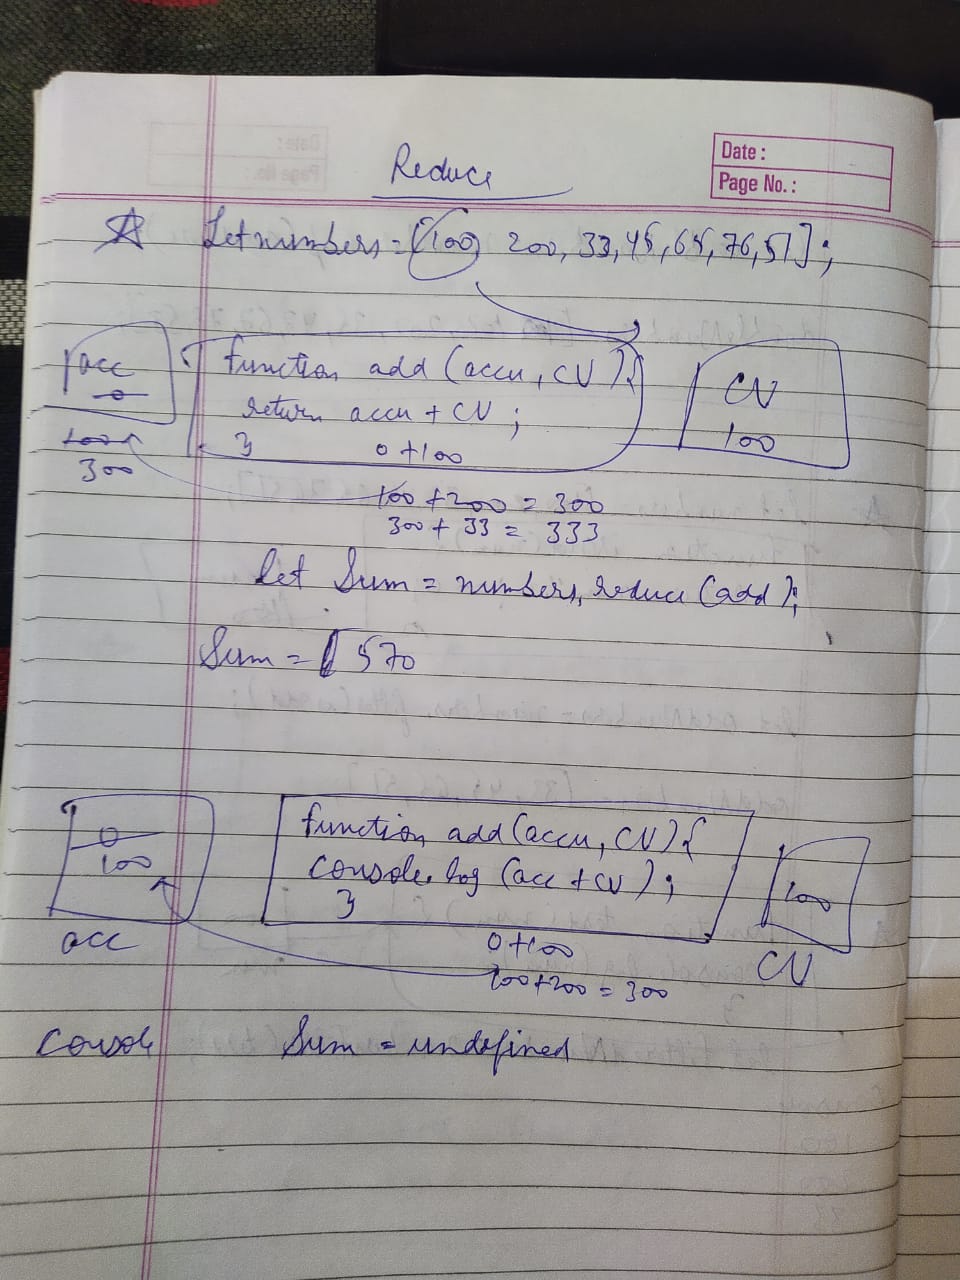 Reduce
Date :
Page No. :
Let numbers = [100, 200, 33, 45, 65, 76, 51];
acc
0
100
300
function add (accu, CV) {
return accu + CV ;
}
0 + 100
CV
100
100 + 200 = 300
300 + 33 = 333
let Sum = numbers, reduce (add);
Sum = 570
0
100
acc
function add (accu, CV) {
console.log (acc + CV);
}
100
CV
0 + 100
100 + 200 = 300
Console Sum = undefined